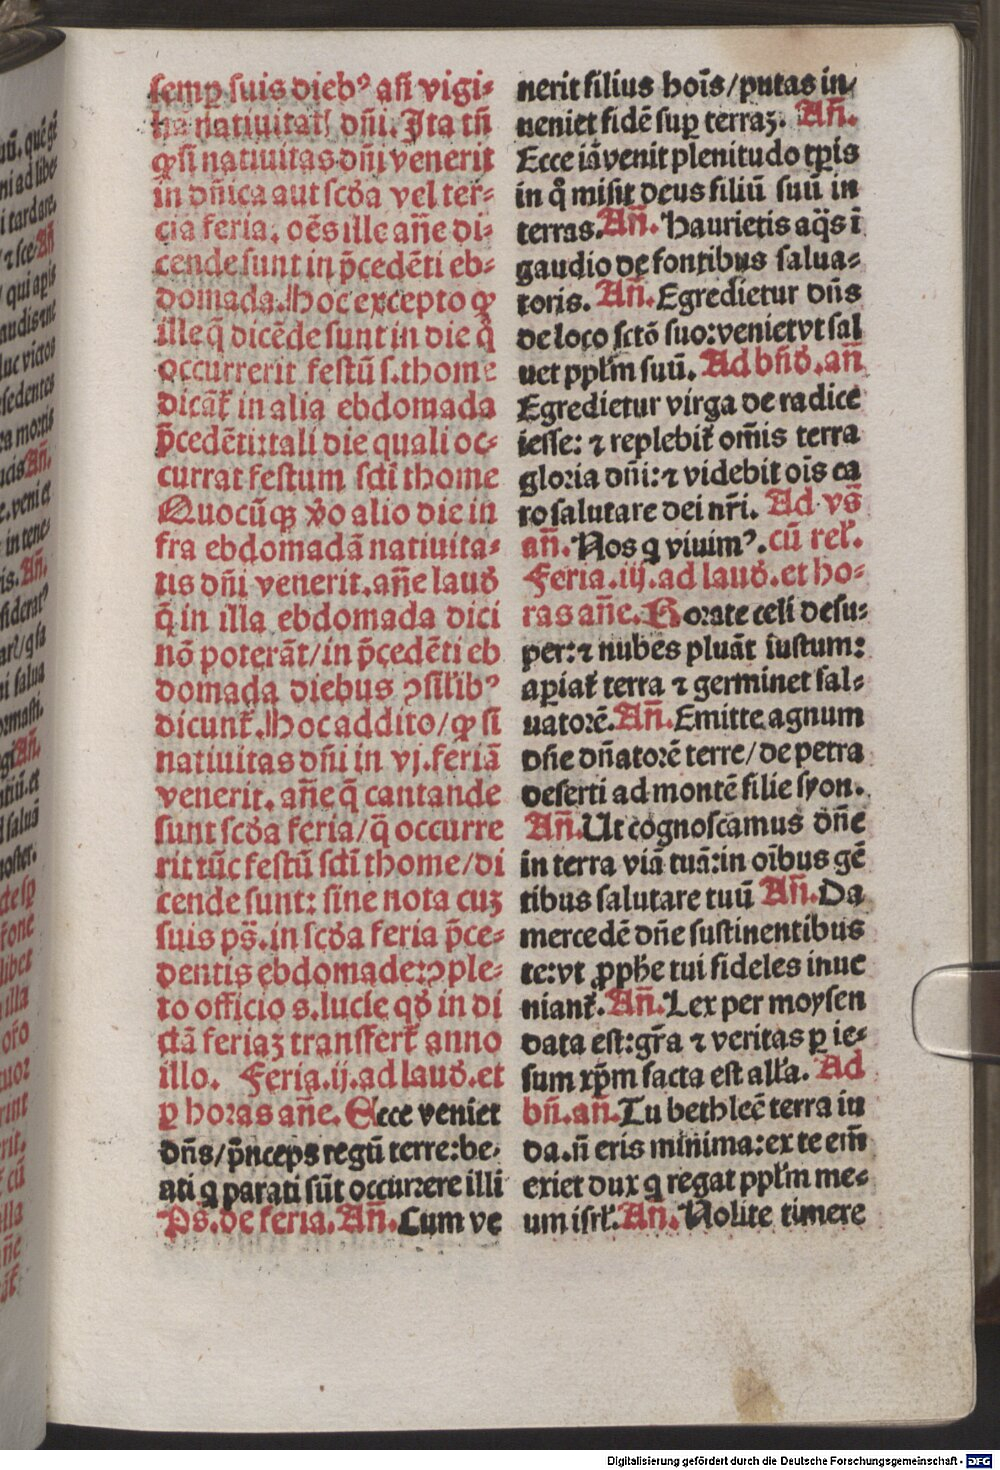 semꝑ suis dieb⁹ añ vigi-
lia natiuitatꝭ dñi. Ita tñ
ꝙ si natiuitas dñi venerit
in dñica aut scd̄a vel ter-
cia feria. oēs ille añe di-
cende sunt in p̄cedēti eb-
domada. Hoc excepto ꝙ
ille q̄ dicēde sunt in die q̊
occurrerit festū s. thome
dicāt᷑ in alia ebdomada
p̄cedēti: tali die quali oc-
currat festum scti thome
Quocūqꝫ v̊o alio die in
fra ebdomadā natiuita-
tis dñi venerit. añe laud̄
q̄ in illa ebdomada dici
nō poterāt/in p̄cedēti eb
domada diebus ꝯsilib⁹
dicunt᷑. Hoc addito/ꝙ si
natiuitas dñi in vj. feriā
venerit. añe q̄ cantande
sunt scd̄a feria/q̄ occurre
rit tūc festū scti thome/di
cende sunt: sine nota cuꝫ
suis ps̄. in scd̄a feria p̄ce-
dentis ebdomade: ꝯple-
to officio s. lucie qd̄ in di
ctā feriaꝫ transfert᷑ anno
illo. Feria. ij. ad laud̄. et
ꝑ horas añe. Ecce veniet
dñs/p̄nceps regū terre: be-
ati q parati sūt occurrere illi
Ps. de feria. Añ. Cum ve
nerit filius hoīs/putas in/
ueniet fidē suꝑ terraꝫ. Añ.
Ecce iā venit plenitudo tꝑis
in q̊ misit deus filiū suū in
terras. Añ. Haurietis aq̄s ī
gaudio de fontibus salua-
toris. Añ. Egredietur dñs
de loco sctō suo: veniet vt sal
uet ppl̄m suū. Ad bñd̄. añ
Egredietur virga de radice
iesse: ⁊ replebit᷑ om̄is terra
gloria dñi: ⁊ videbit oīs ca
ro salutare dei nr̄i. Ad vs̄
añ. Nos q viuim⁹. cū rel̄.
Feria. iij. ad laud̄. et ho-
ras añe. Rorate celi desu-
per: ⁊ nubes pluāt iustum:
aꝑiat᷑ terra ⁊ germinet sal-
uatorē. Añ. Emitte agnum
dñe dñatorē terre/de petra
deserti ad montē filie syon.
Añ. Ut cognoscamus dñe
in terra viā tuā: in oībus gē
tibus salutare tuū Añ. Da
mercedē dñe sustinentibus
te: vt ꝓphe tui fideles inue
niant᷑. Añ. Lex per moysen
data est: gr̄a ⁊ veritas ꝑ ie-
sum xp̄m facta est all̄a. Ad
bñ. añ. Tu bethleē terra iu
da. ñ eris minima: ex te em̄
exiet dux q regat ppl̄m me-
um isrl̄. Añ. Nolite timere
Digitalisierung gefördert durch die Deutsche Forschungsgemeinschaft - DFG